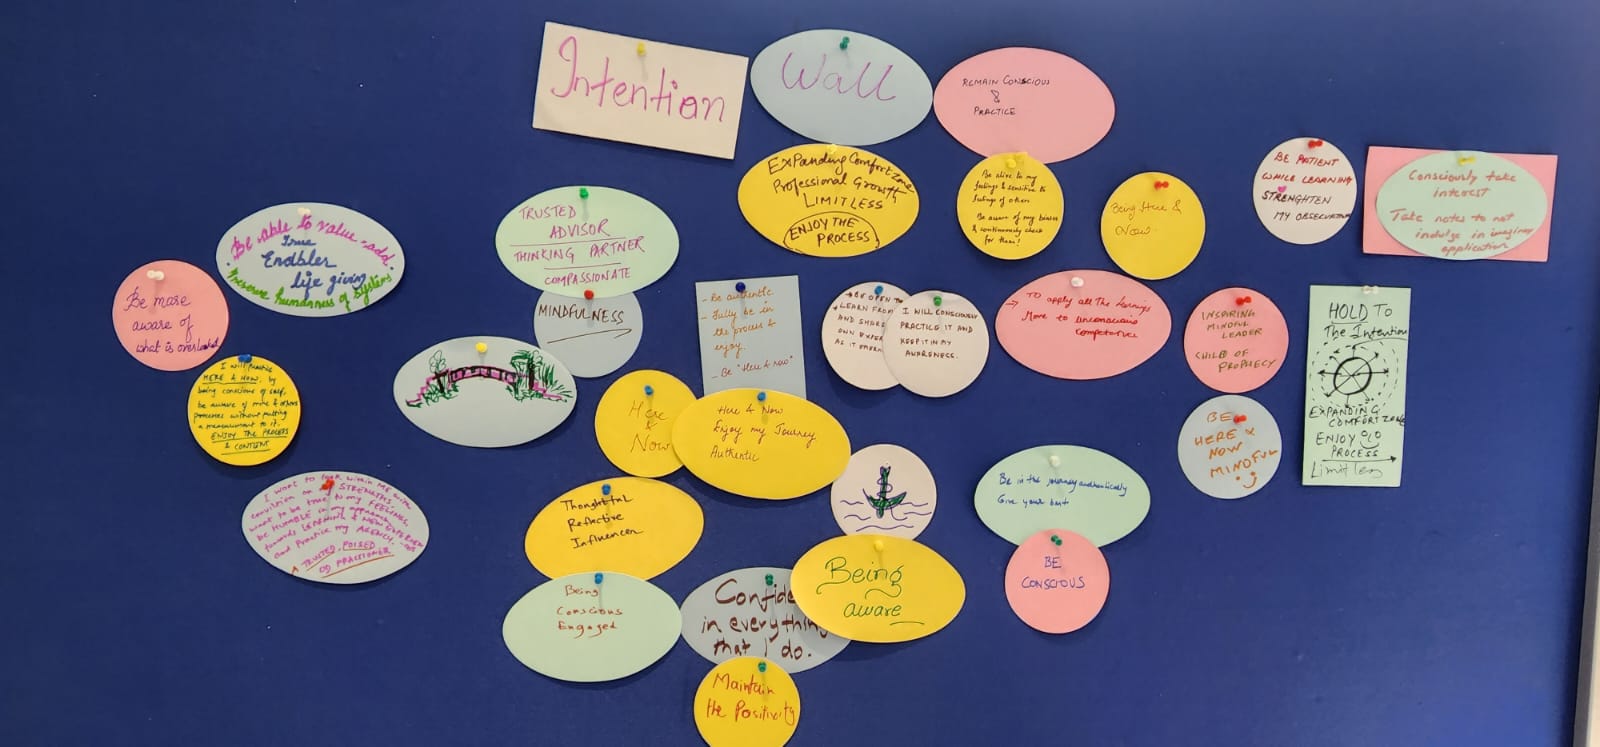 Intention
Wall
REMAIN CONSCIOUS
&
PRACTICE
EXPanding Comfort zone
Professional Growth
LIMITLESS
ENJOY THE
PROCESS
Be alive to my
feelings & sensitive to
feelings of others
Be aware of my biases
& continuously check
for them!
Being Here &
Now
BE PATIENT
WHILE LEARNING
STRENGHTEN
MY OBSERVATION
Consciously take
interest
Take notes to not
indulge in imaginary
application
Be able to value-add.
True
Enabler
life giving
Preserve humanness of systems
TRUSTED
ADVISOR
THINKING PARTNER
COMPASSIONATE
MINDFULNESS
Be more
aware of
what is overlooked
I will practice
HERE & NOW, by
being conscious of self,
be aware of mine & others
processes without putting
a measurement to it.
ENJOY THE PROCESS
& CONTENT
- Be authentic
- Fully be in
the process &
enjoy.
- Be "Here & now"
→ BE OPEN TO
LEARN FROM
AND SHARE
OWN EXPER
AS IT EMER
I WILL CONSCIOUSLY
PRACTICE IT AND
KEEP IT IN MY
AWARENESS.
→ TO apply all The learnings
Move to Unconscious
Competence
INSPIRING
MINDFUL
LEADER
CHILD OF
PROPHECY
HOLD TO
The Intention
EXPANDING
COMFORT ZONE
ENJOY
PROCESS
Limitless
Here
&
Now
Here & Now
Enjoy my Journey
Authentic
BE
HERE &
NOW
MINDFUL
I want to look within ME with
conviction on my STRENGTHS,
want to be true to my FEELINGS,
be HUMBLE in my approach
towards LEARNING & NEW
and Practice my AGENCY.
A TRUSTED, POISED
OD PRACTIONER
Thoughtful
Reflective
Influencer
Be in the journey authentically
Give your best
BE
CONSCIOUS
Being
Conscious
Engaged
Confide
in everything
that I do.
Being
aware
Maintain
the Positivity